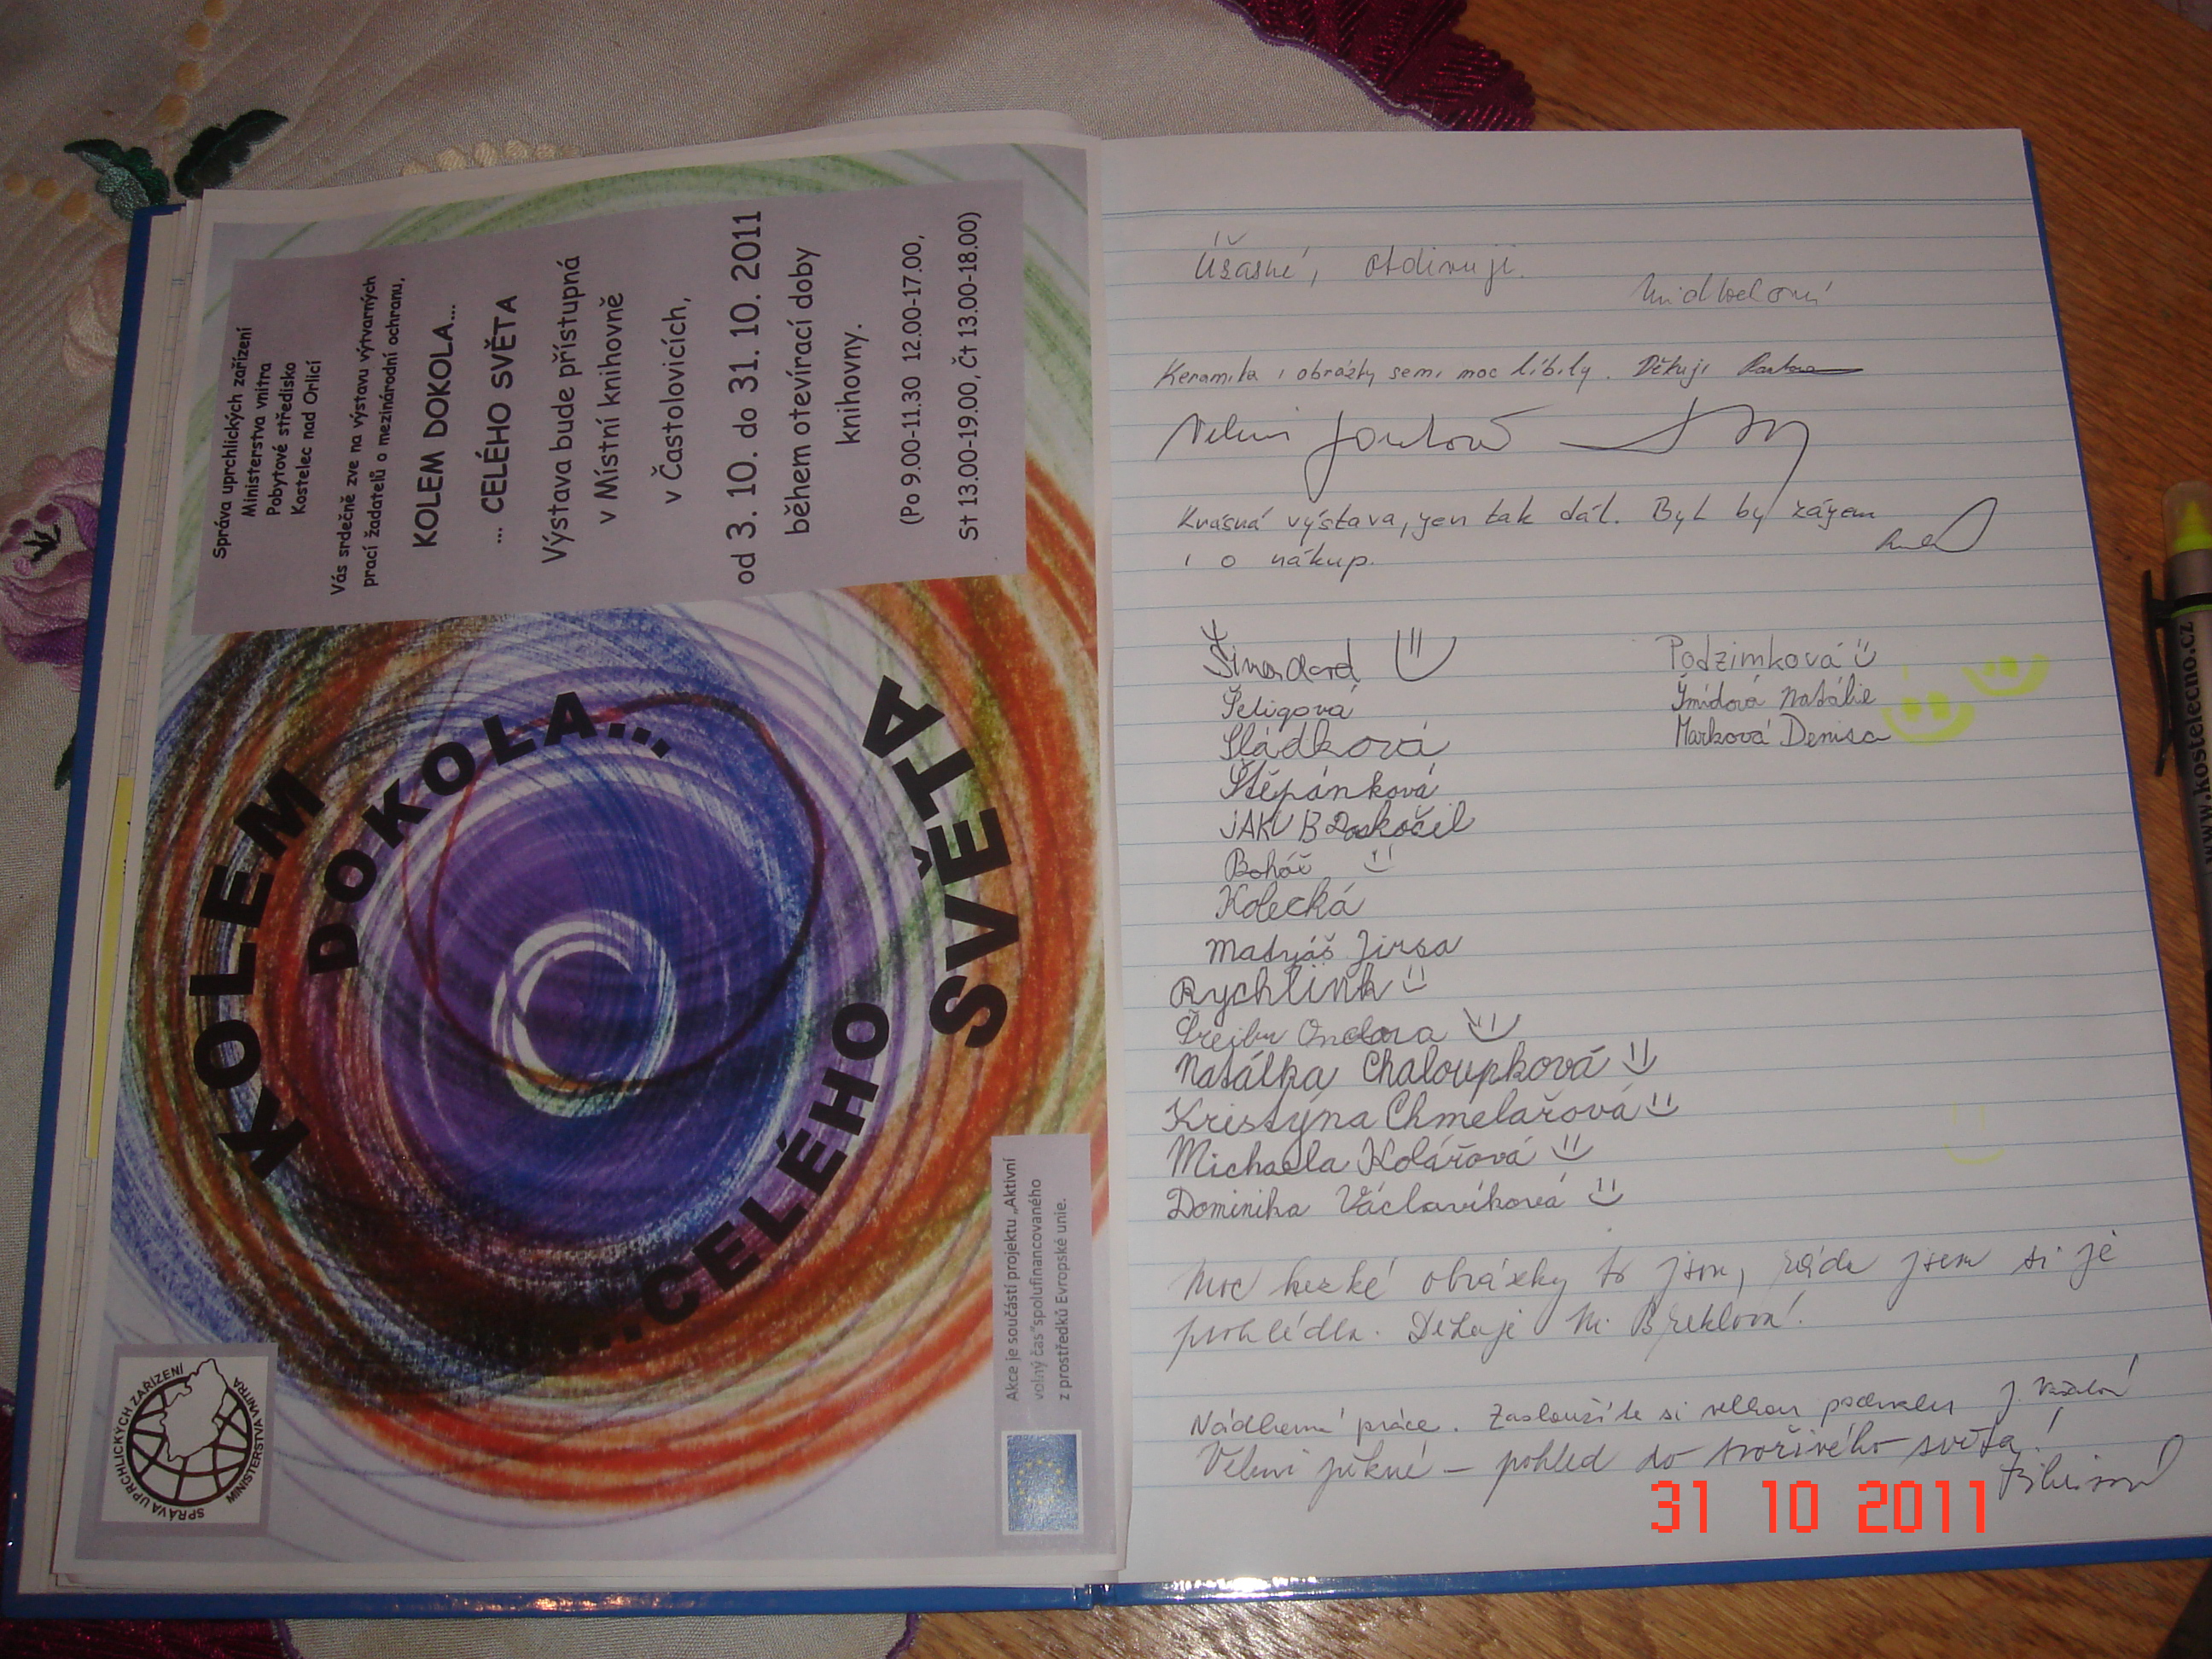 Správa uprchlických zařízení
Ministerstva vnitra
Pobytové středisko
Kostelec nad Orlicí
Vás srdečně zve na výstavu výtvarných
prací žadatelů o mezinárodní ochranu,
KOLEM DOKOLA...
... CELÉHO SVĚTA
Výstava bude přístupná
v Místní knihovně
v Častolovicích,
od 3. 10. do 31. 10. 2011
během otevírací doby
knihovny.
(Po 9.00-11.30 12.00-17.00,
St 13.00-19.00, Čt 13.00-18.00)
KOLEM
DOKOLA...
...CELÉHO
SVĚTA
SPRÁVA UPRCHLICKÝCH ZAŘÍZENÍ
MINISTERSTVA VNITRA
Akce je součástí projektu „Aktivní
volný čas“spolufinancovaného
z prostředků Evropské unie.
Úžasné, obdivuji.
Keramika i obrázky se mi moc líbily. Děkuji
Velmi
Krásná výstava, jen tak dál. Byl by zájem
i o nákup.
Šeligová
Sládková
Štěpánková
JAKUB Doskočil
Boháč
Kolecká
Matyáš Jirsa
Rychlink
Ondora
Natálka Chaloupková
Kristýna Chmelařová
Michaela Kolářová
Dominika Václavíková
Podzimková
Šmídová Natálie
Marková Denisa
Moc hezké obrázky to jsou, ráda jsem si je
prohlédla. Děkuje
Nádherná práce. Zaslouží te si velkou
Velmi pěkné – pohled do tvořivého světa!
www.kostelecno.cz
31 10 2011